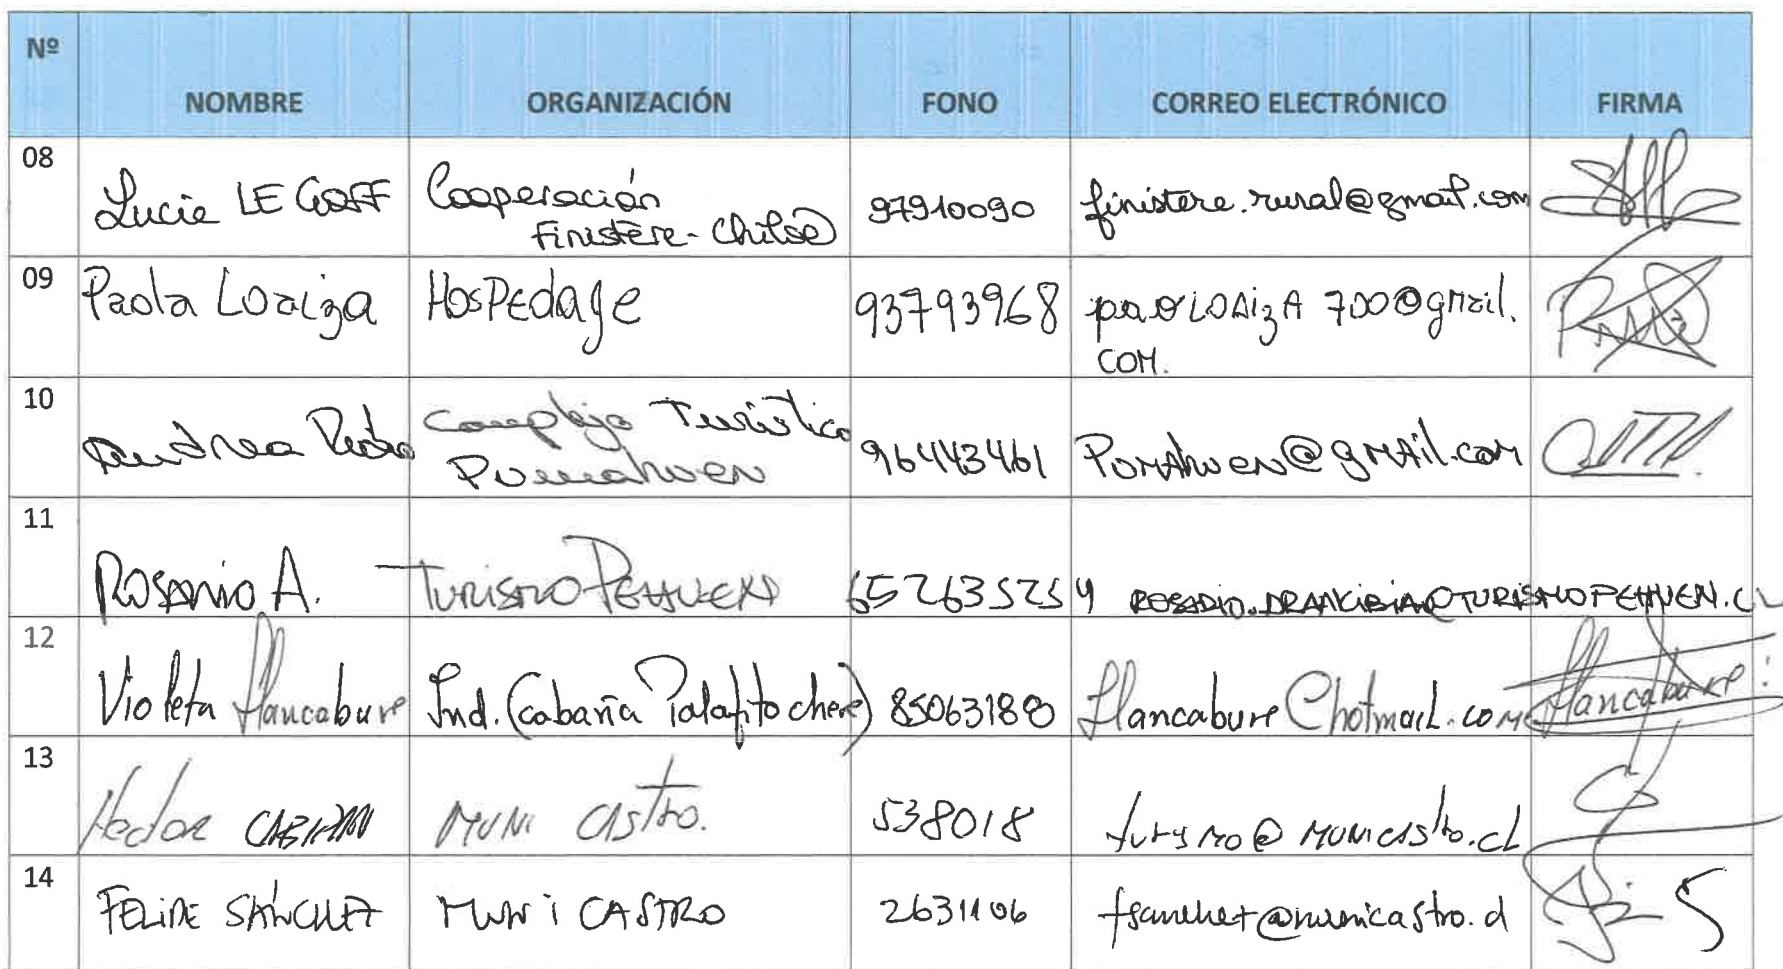 Nº NOMBRE ORGANIZACIÓN FONO CORREO ELECTRÓNICO FIRMA
08 Lucie LE GOFF Cooperación Finistère-Chiloé 97910090 finistere.rural@gmail.com
09 Paola Loaiza HosPEdaje 93793968 paoLOAizA700@gmail.com.
10 Andrea Complejo Turístico Pumahuen 96443461 PomAhuen@gmail.com
11 Rosario A. Turismo Pehuen 65 2635254 @TURISMOPEHUEN.CL
12 Violeta Llancabure Ind. (cabaña Palafito chere) 85063180 Llancabure@hotmail.com Llancabure
13 Hector MUNI CASTRO. 538018 turismo@municastro.cl
14 FELIPE SÁNCHEZ MUNI CASTRO 2631106 fsanchez@municastro.cl